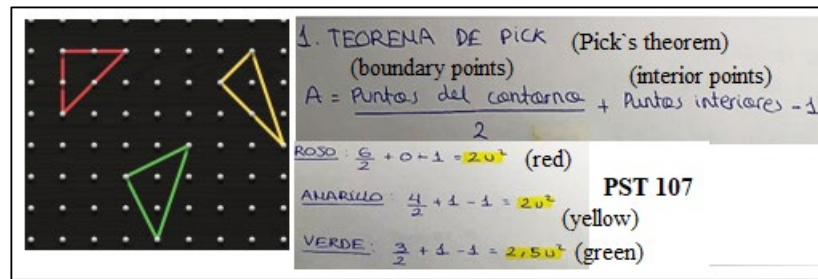 1. TEOREMA DE PICK (Pick`s theorem)
(boundary points) (interior points)
A = Puntos del contorno / 2 + Puntos interiores - 1
ROJO: 6/2 + 0 - 1 = 2u² (red)
PST 107
AMARILLO: 4/2 + 1 - 1 = 2u²
(yellow)
VERDE: 3/2 + 1 - 1 = 2,5u² (green)